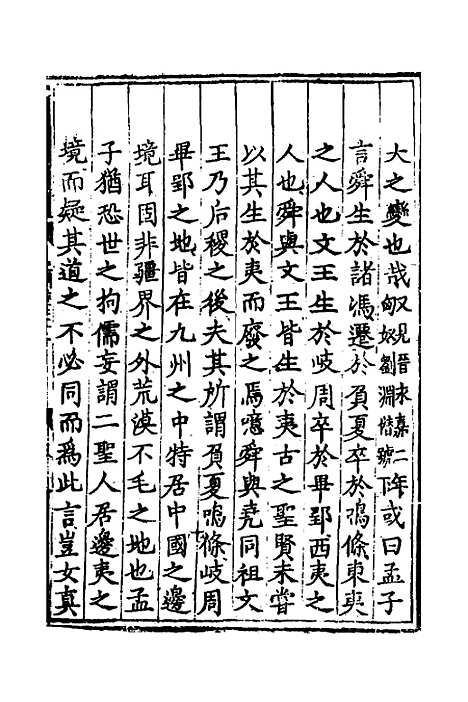 大之變也哉又見晉永嘉二年匈奴劉淵僭號下或曰孟子
言舜生於諸馮遷於負夏卒於鳴條東夷
之人也文王生於岐周卒於畢郢西夷之
人也舜與文王皆生於夷古之聖賢未嘗
以其生於夷而廢之焉噫舜與堯同祖文
王乃后稷之後夫其所謂負夏鳴條岐周
畢郢之地皆在九州之中特居中國之邊
境耳固非疆界之外荒漠不毛之地也孟
子猶恐世之拘儒妄謂二聖人居邊夷之
境而疑其道之不必同而為此言豈女真